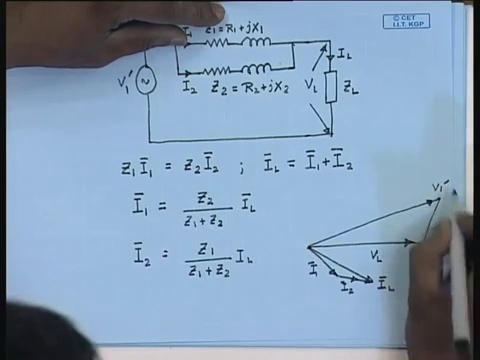 © CET
I.I.T. KGP
I₁ Z₁ = R₁ + jX₁
I_L
V₁′
I₂ Z₂ = R₂ + jX₂
V_L
Z_L
Z₁ Ī₁ = Z₂ Ī₂ ; Ī_L = Ī₁ + Ī₂
Ī₁ = Z₂ / (Z₁ + Z₂) Ī_L
Ī₂ = Z₁ / (Z₁ + Z₂) I_L
V₁′
V_L
Ī₁
I₂
Ī_L